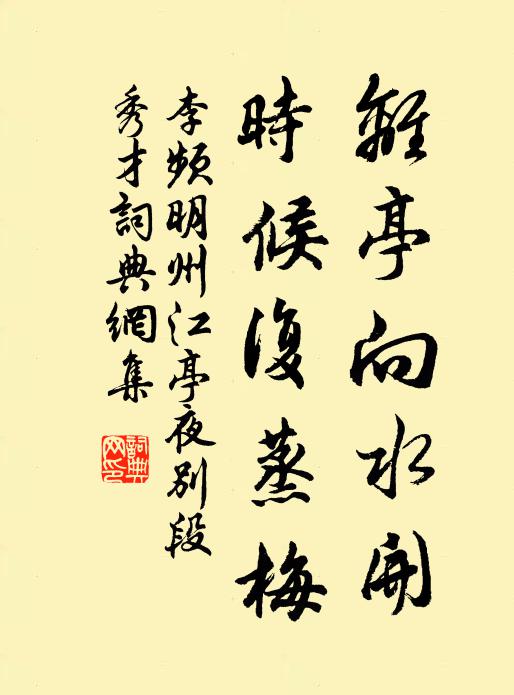 離亭向水開
時候復蒸梅
李頻明州江亭夜別段
秀才詞典網集
詞典网印